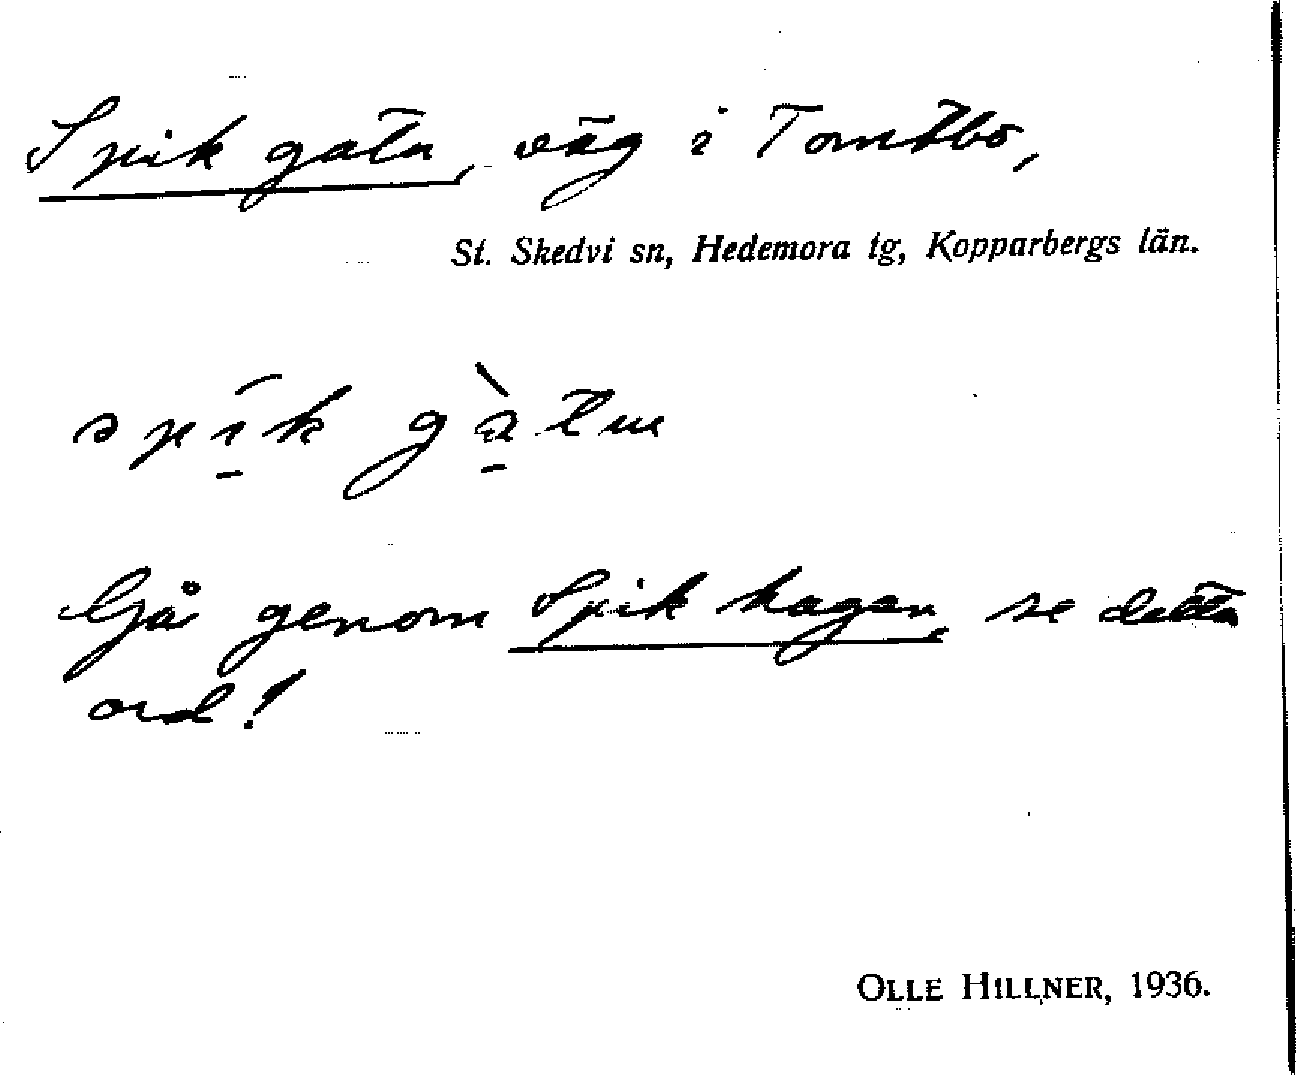 Spikgatu, väg i Tomtbo,
St. Skedvi sn, Hedemora tg, Kopparbergs län.
Gå genom Spikhagen, se detta
ord!
OLLE HILLNER, 1936.